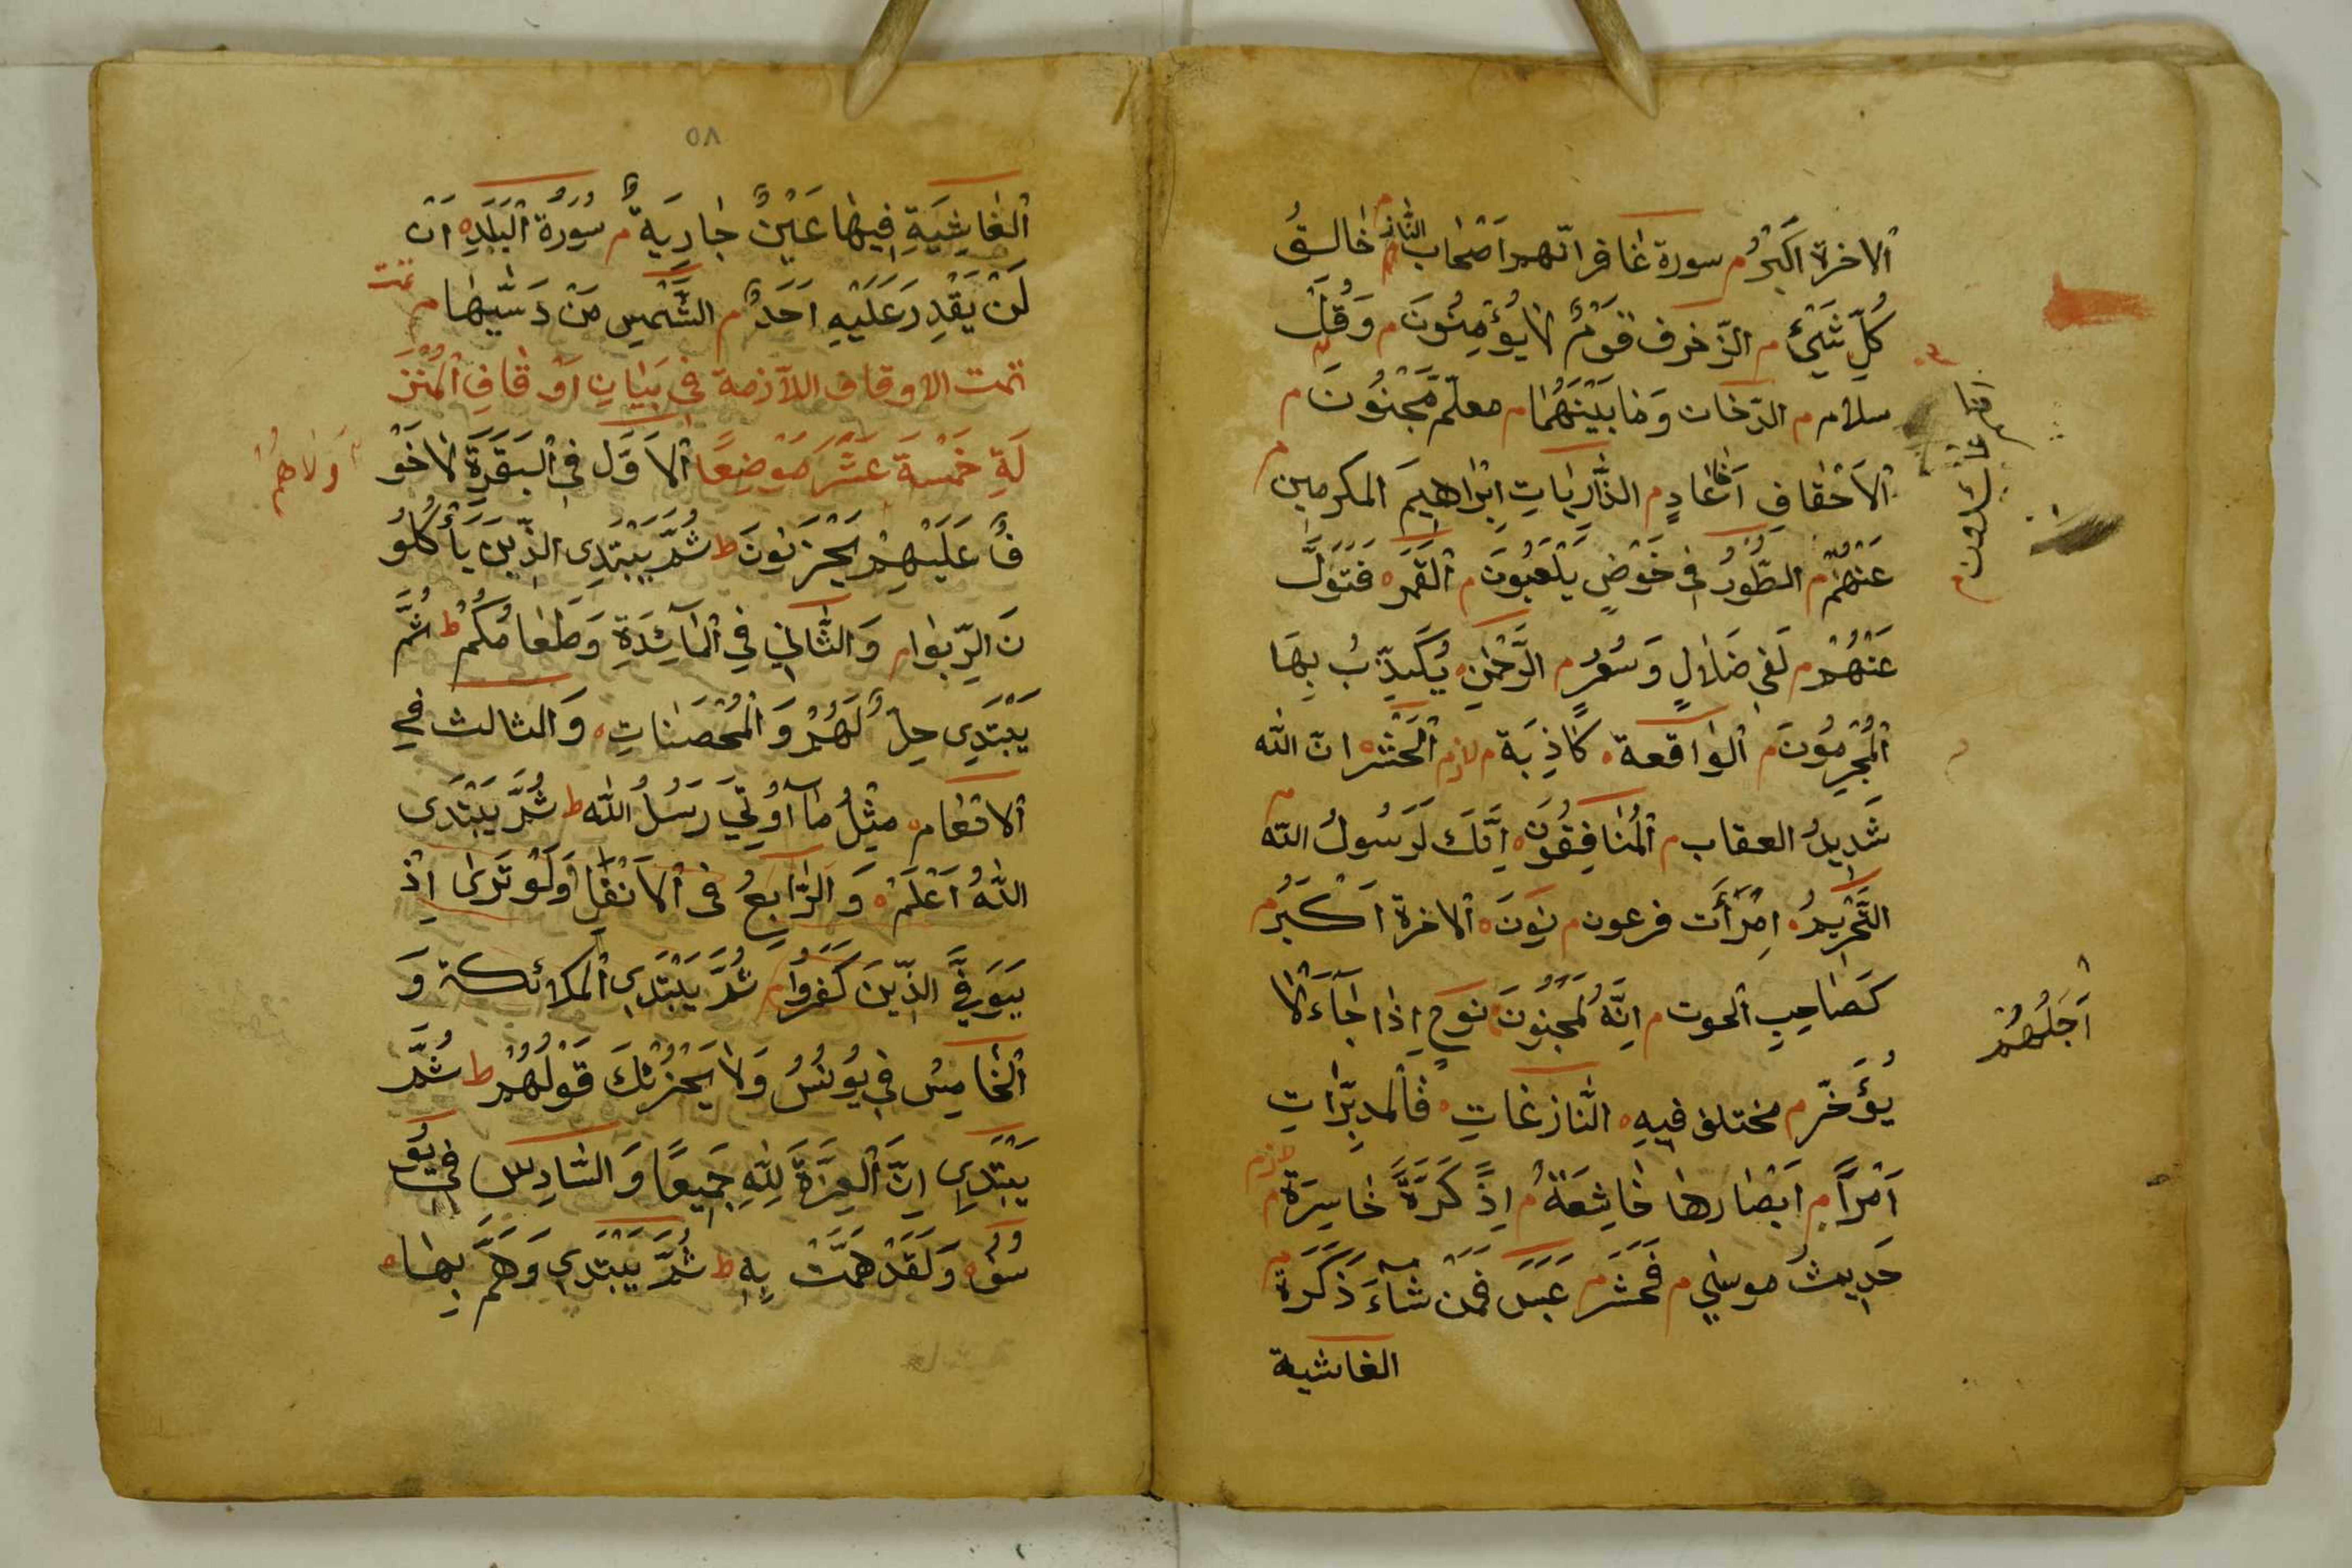 الاخرة اكبرُ م سورة غافر انّهم اصحاب النّار م خالقُ
كُلِّ شَيْءٍ م الزّخرف قَوْمٌ لَا يُؤْمِنُونَ م وَقُلْ
سلام م الدّخان وَمَا بَيْنَهُمَا م معلّم مَجْنُونَ م
اَلْاَحْقافِ اَخَا عَادٍ م الذَّارِيَاتِ اِبْرَاهِيمَ المكرمين م
عَنْهُمْ م الطُّورُ فِي خَوْضٍ يَلْعَبُونَ م اَلْقَمَرِ فَتَوَلَّ
عَنْهُمْ م لَفِي ضَلَالٍ وَسُعُرٍ م الرَّحْمٰنِ يُكَذِّبُ بِهَا
اَلْمُجْرِمُونَ م اَلْوَاقعة كَاذِبَة م لازم اَلْحَشْرِ انّ الله
شَدِيدُ العقاب م اَلْمُنَافِقُونَ اِنَّكَ لَرَسُولُ الله م
التَّحْرِيمُ اِمْرَأَت فرعون م نُونَ الاخرة اَكْبَرُ م
كَصَاحِبِ الحوت م اِنَّهُ لَمَجْنُونَ نوح اِذَا جَاءَ لَا
يُؤَخَّرُ م مختلف فيهِ النَّازِعَاتِ فَالْمُدَبِّرَاتِ
اَمْرًا م اَبْصَارها خَاشِعَةٌ م اِذً كَرَّةٌ خَاسِرَة م لازم
حَدِيثُ موسٰي م فَحَشَر م عَبَسَ فَمَنْ شَآءَ ذَكَرَهُ م
الغاشية
اَجَلُهُمْ
٥٨
اَلْغَاشِيَةِ فِيهَا عَيْنٌ جَارِيَةٌ م سُورَةُ الْبَلَدِ اَنْ
لَنْ يَقْدِرَ عَلَيْهِ اَحَدٌ م الشَّمْسِ مَنْ دَسَّيهَا م تمت
تمت الاوقاف اللّازمة فِي بَيَانِ اَوْقَافِ الْمُنَزَّ
لَةِ خَمْسَةَ عَشَرَ مَوْضِعًا اَلْاَوَّل فِي الْبَقَرَةِ لَا خَوْ
فٌ عَلَيْهِمْ يَحْزَنُونَ ط ثُمَّ يَبْتَدِى الَّذِينَ يَأْكُلُو
نَ الرِّبٰوا م وَالثَّانِي فِي الْمَآئِدَةِ وَطَعَامُكُمْ ط ثُمَّ
يَبْتَدِى حِلٌّ لَهُمْ وَالْمُحْصَنَاتِ وَالثالث فِي
الانعام مِثْلُ مَآ اُوتِيَ رُسُلُ الله ط ثُمَّ يَبْتَدِى
اللّٰهُ اَعْلَمُ وَالرَّابِعُ فى الْاَنْفَالِ وَلَوْ تَرٰى اِذْ
يَتَوَفَّى الَّذِينَ كَفَرُوا م ثُمَّ يَبْتَدِى الملائكة وَ
الْخَامِسُ فِي يُونُسُ وَلَا يَحْزُنْكَ قَوْلُهُمْ ط ثُمَّ
يَبْتَدِى اِنَّ الْعِزَّةَ لِلّٰهِ جَمِيعًا وَالسَّادِس فِي يُو
سُف وَلَقَدْ هَمَّتْ بِهِ ط ثُمَّ يَبْتَدِى وَهَمَّ بِهَا
وَلَا هُمْ